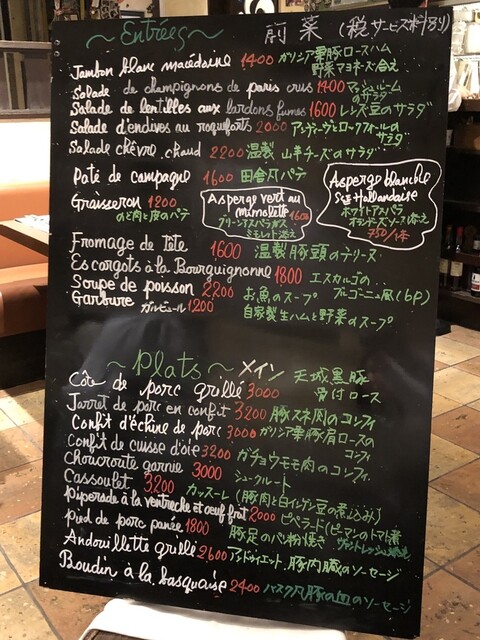 ～Entrées～ 前菜 (税サービス料別)
Jambon blanc macédoine 1400 ガリシア栗豚ロースハム
野菜マヨネーズ合え
Salade de champignons de paris crus 1400 マッシュルームの
サラダ
Salade de lentilles aux lardons fumes 1600 レンズ豆のサラダ
Salade d'endives au roqueforts 2000 アンディーヴとロックフォールの
サラダ
Salade chèvre chaud 2200 温製 山羊チーズのサラダ
Pâté de campagne 1600 田舎風パテ
Gratteron 1200
のど肉と皮のパテ
Asperge vert au
mimolette 1600
グリーンアスパラガス
ミモレット添え
Asperge blanche
Sce Hollandaise
ホワイトアスパラ
オランデーズソース添え
750/1本
Fromage de tête 1600 温製豚頭のテリーヌ
Escargots à la Bourguignonne 1800 エスカルゴの
ブルゴーニュ風(6p)
Soupe de poisson 2200 お魚のスープ
Garbure ガルビュール 1200 自家製生ハムと野菜のスープ
～Plats～ メイン
Côte de porc grillé 3000 天城黒豚
骨付ロース
Jarret de porc en confit 3200 豚スネ肉のコンフィ
Confit d'échine de porc 3000 ガリシア栗豚肩ロースの
コンフィ
Confit de cuisse d'oie 3200 ガチョウモモ肉のコンフィ
Choucroute garnie 3000 シュークルート
Cassoulet 3200 カッスーレ(豚肉と白インゲン豆の煮込み)
piperade à la ventreche et œuf frit 2000 ピペラード(ピーマンのトマト煮
pied de porc panée 1800 豚足のパン粉焼き
Andouillette grillé 2600 アンドゥイエット、豚内臓のソーセージ
Boudin à la basquaise 2400 バスク風豚の血のソーセージ